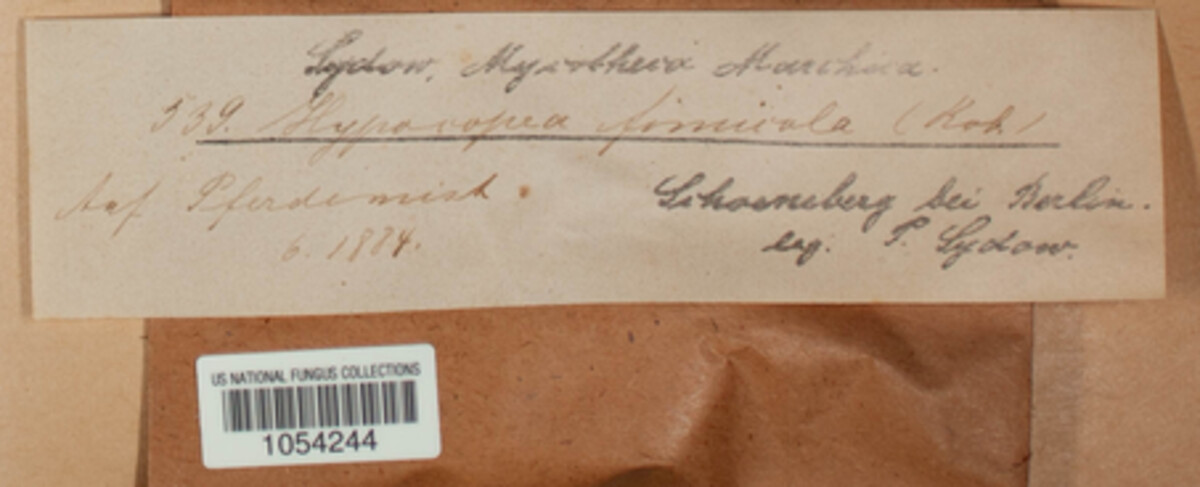 Sydow, Mycotheca Marchica.
539. Hypocopra fimicola (Rob)
Auf Pferdemist.
6. 1884.
Schoeneberg bei Berlin.
leg. P. Sydow.
US NATIONAL FUNGUS COLLECTIONS
1054244